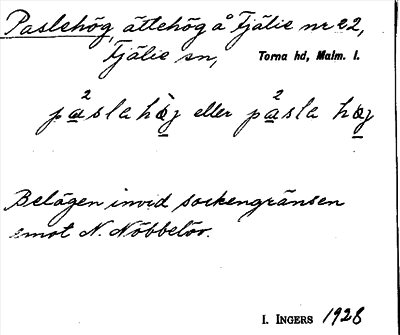 Paslehög, ättehög å Fjälie nr 22,
Fjälie sn, Torna hd, Malm. l.
på²sla hö̀ʒ eller på²sla höʒ
Belägen invid sockengränsen
emot N. Nöbbelöv.
I. INGERS 1928